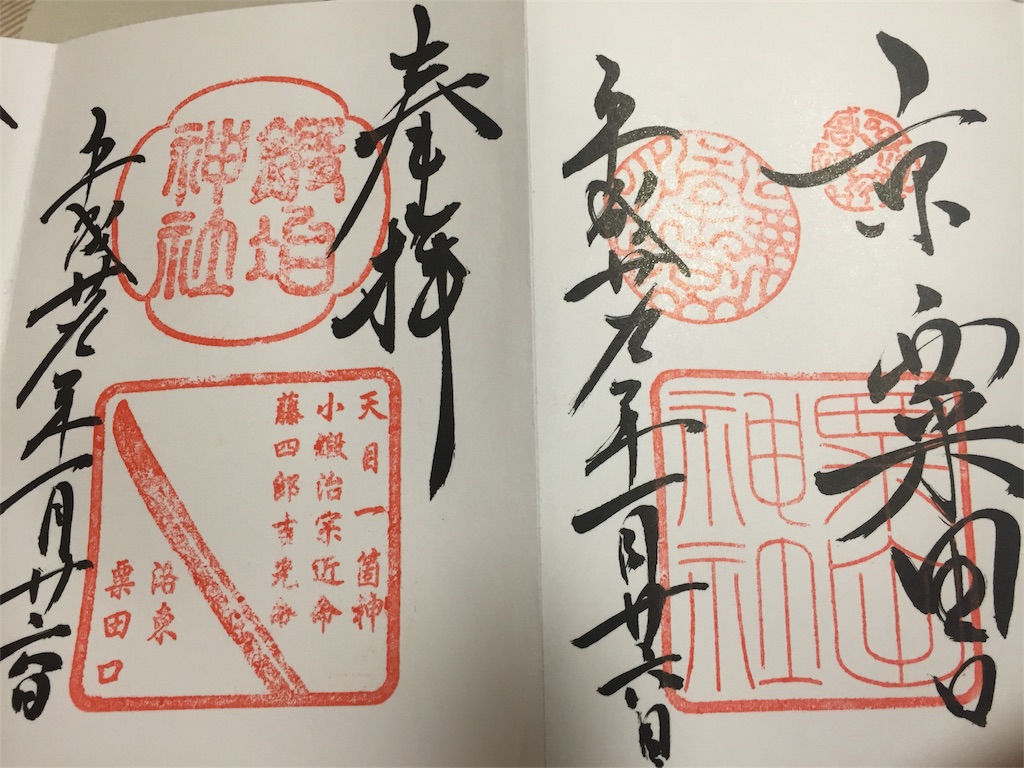 京 粟田口
粟田神社
平成廿九年一月廿六日
奉拝
鍛冶神社
天目一箇神
小煅治宗近命
藤四郎吉光命
洛東
粟田口
平成廿九年一月廿六日